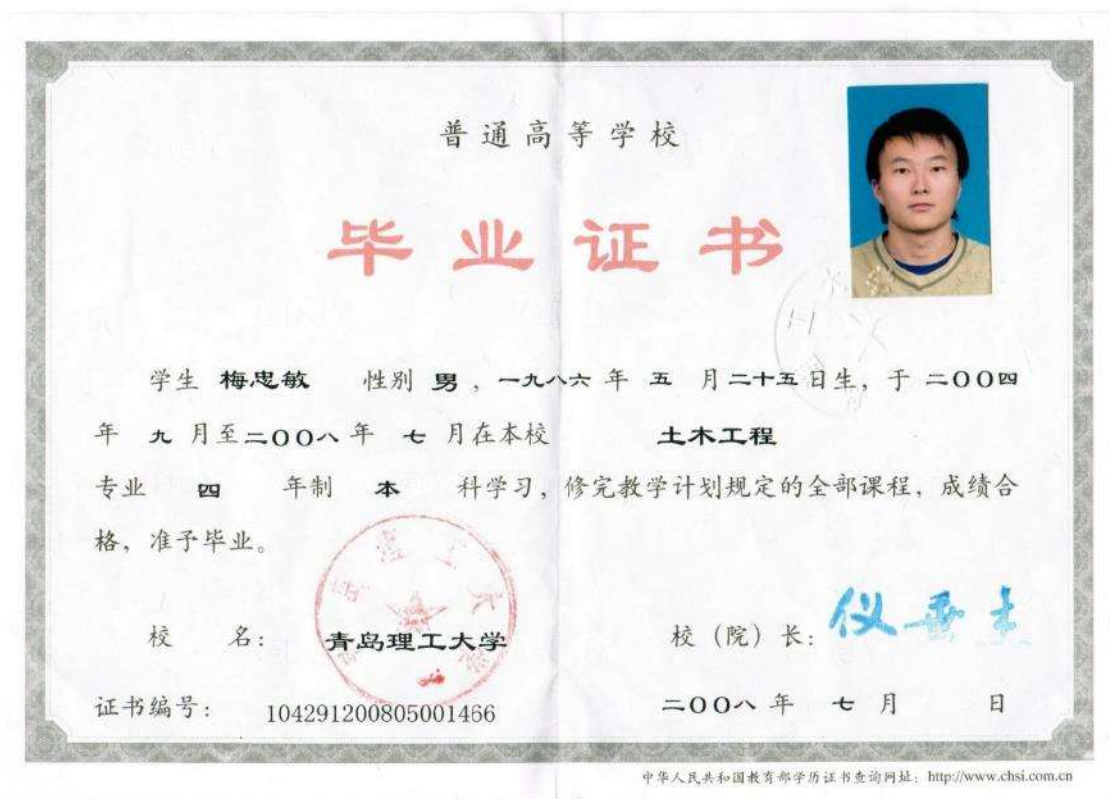 普通高等学校
毕业证书
学生 梅忠敏 性别 男，一九八六 年 五 月二十五日生，于 二〇〇四
年 九 月至二〇〇八 年 七 月在本校 土木工程
专业 四 年制 本 科学习，修完教学计划规定的全部课程，成绩合
格，准予毕业。
校 名： 青岛理工大学
校（院）长： 仪垂杰
证书编号： 104291200805001466
二〇〇八 年 七 月 日
中华人民共和国教育部学历证书查询网址：http://www.chsi.com.cn